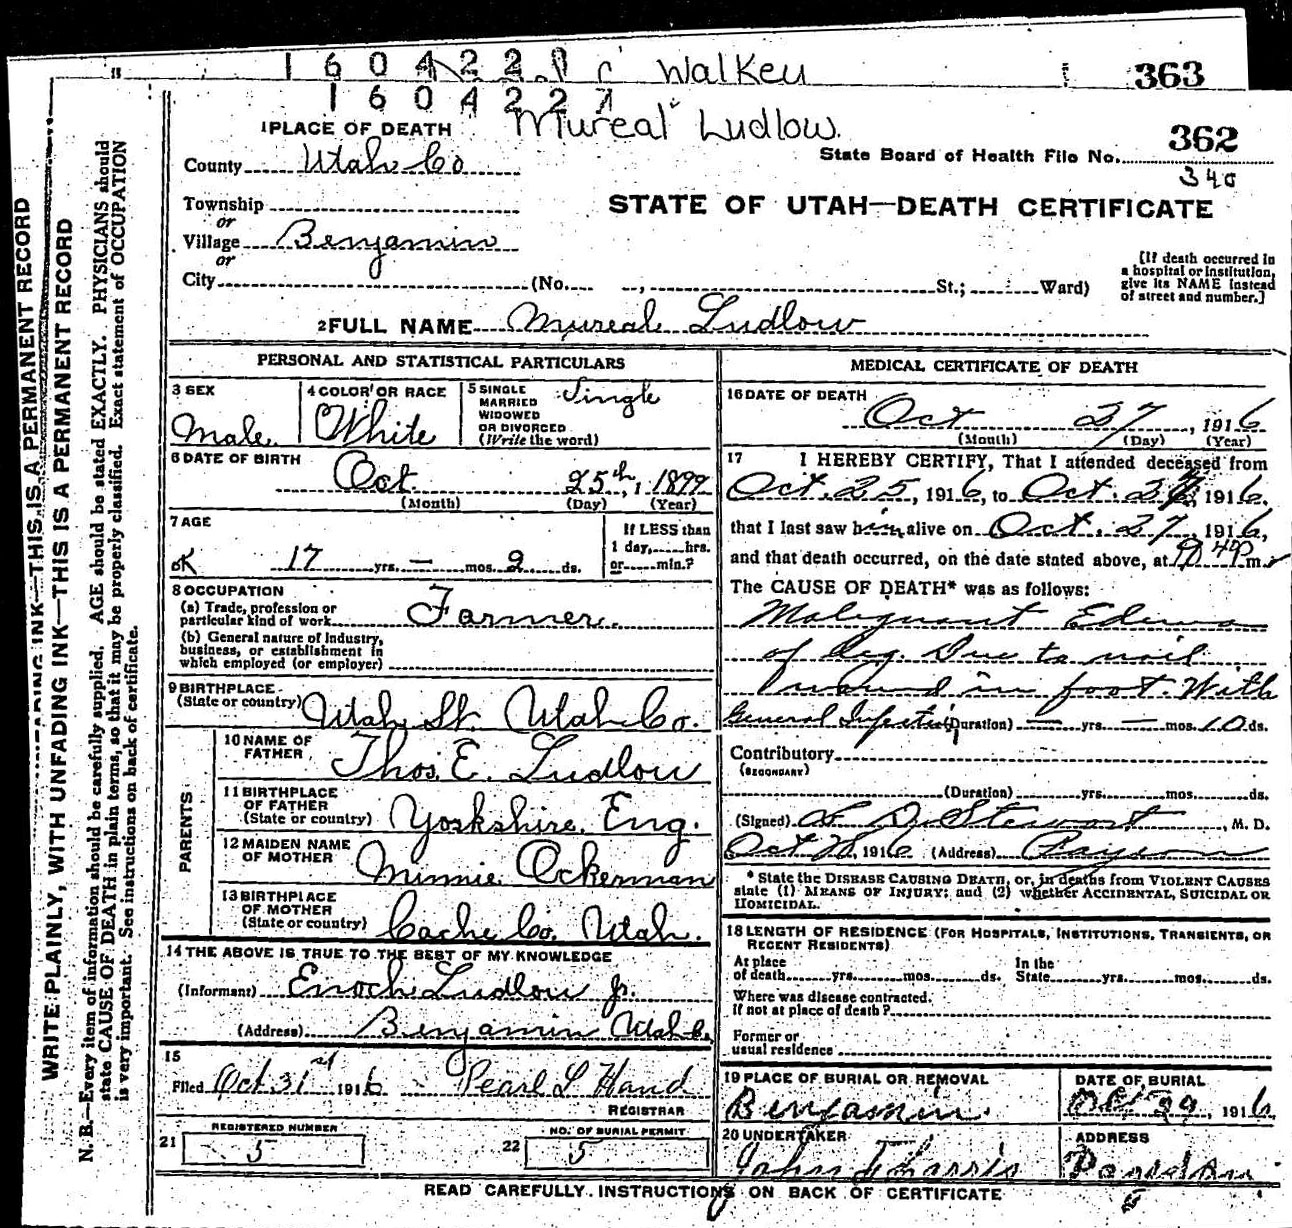 1604228 c Walker
363
1604227
Mureal Ludlow
362
1 PLACE OF DEATH
State Board of Health File No.
340
County Utah Co
STATE OF UTAH—DEATH CERTIFICATE
Township
or
Village Benjamin
or
City (No. , St.; Ward)
[If death occurred in
a hospital or institution,
give its NAME instead
of street and number.]
2 FULL NAME Mureal Ludlow
PERSONAL AND STATISTICAL PARTICULARS
3 SEX
Male
4 COLOR OR RACE
White
5 SINGLE
MARRIED
WIDOWED
OR DIVORCED
(Write the word)
Single
6 DATE OF BIRTH
Oct 25th, 1899
(Month) (Day) (Year)
7 AGE
If LESS than
1 day, hrs.
or min.?
OK 17 yrs. — mos. 2 ds.
8 OCCUPATION
(a) Trade, profession or
particular kind of work Farmer.
(b) General nature of Industry,
business, or establishment in
which employed (or employer)
9 BIRTHPLACE
(State or country) Utah St. Utah Co.
PARENTS
10 NAME OF
FATHER Thos. E. Ludlow
11 BIRTHPLACE
OF FATHER
(State or country) Yorkshire Eng.
12 MAIDEN NAME
OF MOTHER Minnie Ockerman
13 BIRTHPLACE
OF MOTHER
(State or country) Cache Co. Utah.
14 THE ABOVE IS TRUE TO THE BEST OF MY KNOWLEDGE
(Informant) Enoch Ludlow Jr.
(Address) Benjamin Utah Co.
15
Filed Oct 31st 1916 Pearl L Hand
REGISTRAR
21 REGISTERED NUMBER
5
22 NO. OF BURIAL PERMIT
5
MEDICAL CERTIFICATE OF DEATH
16 DATE OF DEATH
Oct 27, 1916
(Month) (Day) (Year)
17 I HEREBY CERTIFY, That I attended deceased from
Oct. 25, 1916, to Oct. 27, 1916.
that I last saw him alive on Oct. 27, 1916,
and that death occurred, on the date stated above, at m.
The CAUSE OF DEATH* was as follows:
Malignant Edema
of leg. Due to nail
wound in foot. With
General Infection (Duration) — yrs. — mos. 10 ds.
Contributory
(SECONDARY)
(Duration) yrs. mos. ds.
(Signed) L. D. Stewart, M. D.
Oct 28, 1916 (Address) Payson
* State the DISEASE CAUSING DEATH, or, in deaths from VIOLENT CAUSES
state (1) MEANS OF INJURY; and (2) whether ACCIDENTAL, SUICIDAL OR
HOMICIDAL.
18 LENGTH OF RESIDENCE (FOR HOSPITALS, INSTITUTIONS, TRANSIENTS, OR
RECENT RESIDENTS)
At place
of death yrs. mos. ds.
In the
State yrs. mos. ds.
Where was disease contracted.
If not at place of death?
Former or
usual residence
19 PLACE OF BURIAL OR REMOVAL
Benjamin.
DATE OF BURIAL
Oct 29, 1916
20 UNDERTAKER
John F Harris
ADDRESS
Payson
READ CAREFULLY INSTRUCTIONS ON BACK OF CERTIFICATE
WRITE PLAINLY, WITH UNFADING INK—THIS IS A PERMANENT RECORD
N. B.—Every item of information should be carefully supplied. AGE should be stated EXACTLY. PHYSICIANS should
state CAUSE OF DEATH in plain terms, so that it may be properly classified. Exact statement of OCCUPATION
is very important. See instructions on back of certificate.
FADING INK—THIS IS A PERMANENT RECORD